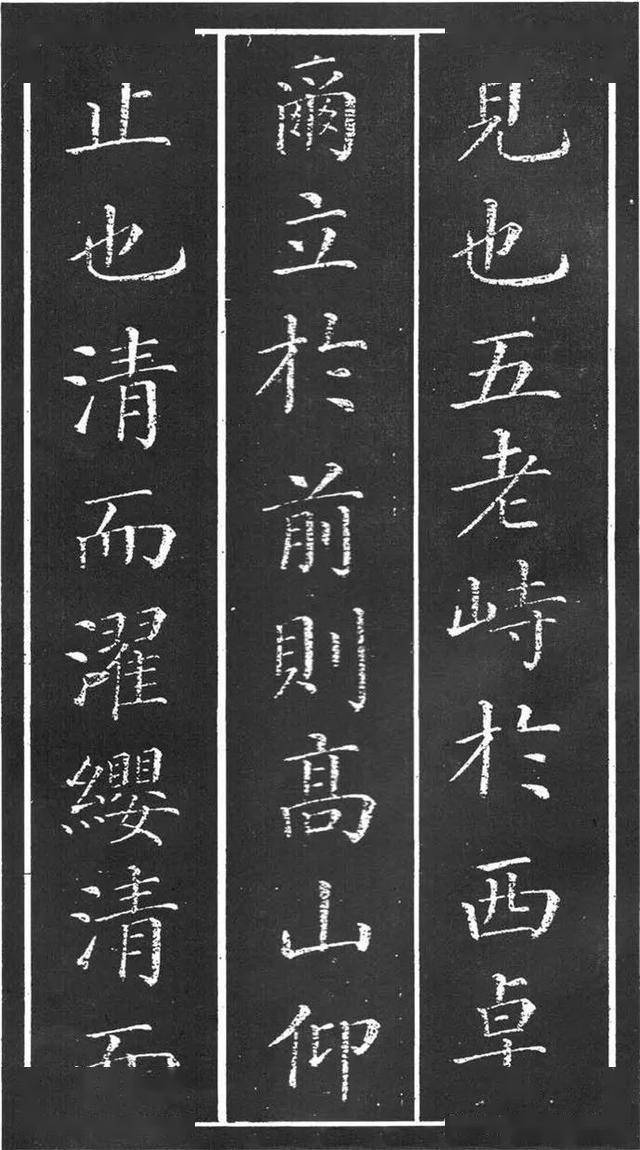 見也五老峙於西卓
爾立於前則髙山仰
止也清而濯纓清而